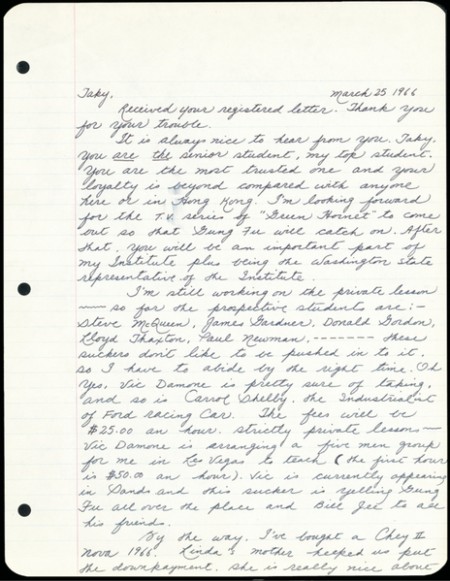 Taky, March 25 1966
Received your registered letter. Thank you
for your trouble.
It is always nice to hear from you. Taky,
you are the senior student, my top student.
You are the most trusted one and your
loyalty is beyond compared with anyone
here or in Hong Kong. I'm looking forward
for the T.V. series of "Green Hornet" to come
out so that Gung Fu will catch on. After
that, you will be an important part of
my Institute plus being the Washington State
representative of the Institute.
I'm still working on the private lesson
—— so far the prospective students are :-
Steve McQueen, James Gardner, Donald Gordon,
Lloyd Thaxton, Paul Newman, ------- these
suckers don't like to be pushed in to it,
so I have to abide by the right time. Oh
Yes, Vic Damone is pretty sure of taking,
and so is Carrol Shelby, the Industrialist
of Ford racing Car. The fees will be
$25.00 an hour. strictly private lessons —
Vic Damone is arranging a five men group
for me in Las Vegas to teach (the first hour
is $50.00 an hour). Vic is currently appearing
in Sands and this sucker is yelling Gung
Fu all over the place and Bill Gee to all
his friends.
By the way, I've bought a Chevy II
Nova 1966. Linda's mother helped us put
the downpayment. She is really nice about